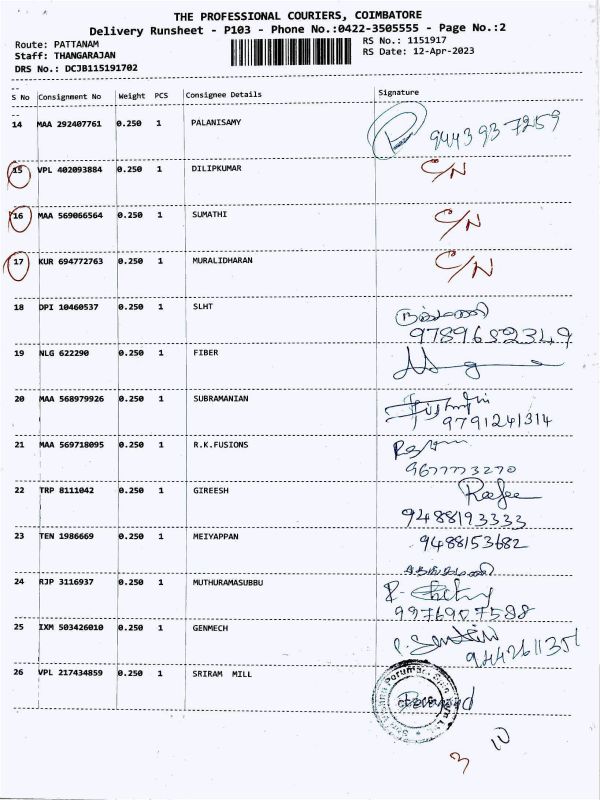 THE PROFESSIONAL COURIERS, COIMBATORE
Delivery Runsheet - P103 - Phone No.:0422-3505555 - Page No.:2
Route: PATTANAM
RS No.: 1151917
Staff: THANGARAJAN
RS Date: 12-Apr-2023
DRS No.: DCJB115191702
S No Consignment No Weight PCS Consignee Details Signature
14 MAA 292407761 0.250 1 PALANISAMY 9443937259
15 VPL 402093884 0.250 1 DILIPKUMAR C/N
16 MAA 569066564 0.250 1 SUMATHI C/N
17 KUR 694772763 0.250 1 MURALIDHARAN C/N
18 DPI 10460537 0.250 1 SLHT
9789652349
19 NLG 622290 0.250 1 FIBER
20 MAA 568979926 0.250 1 SUBRAMANIAN
9791241314
21 MAA 569718095 0.250 1 R.K.FUSIONS
9677773270
22 TRP 8111042 0.250 1 GIREESH
9488193333
23 TEN 1986669 0.250 1 MEIYAPPAN 9488153682
24 RJP 3116937 0.250 1 MUTHURAMASUBBU
9976907588
25 IXM 503426010 0.250 1 GENMECH
9442611351
26 VPL 217434859 0.250 1 SRIRAM MILL
3 10